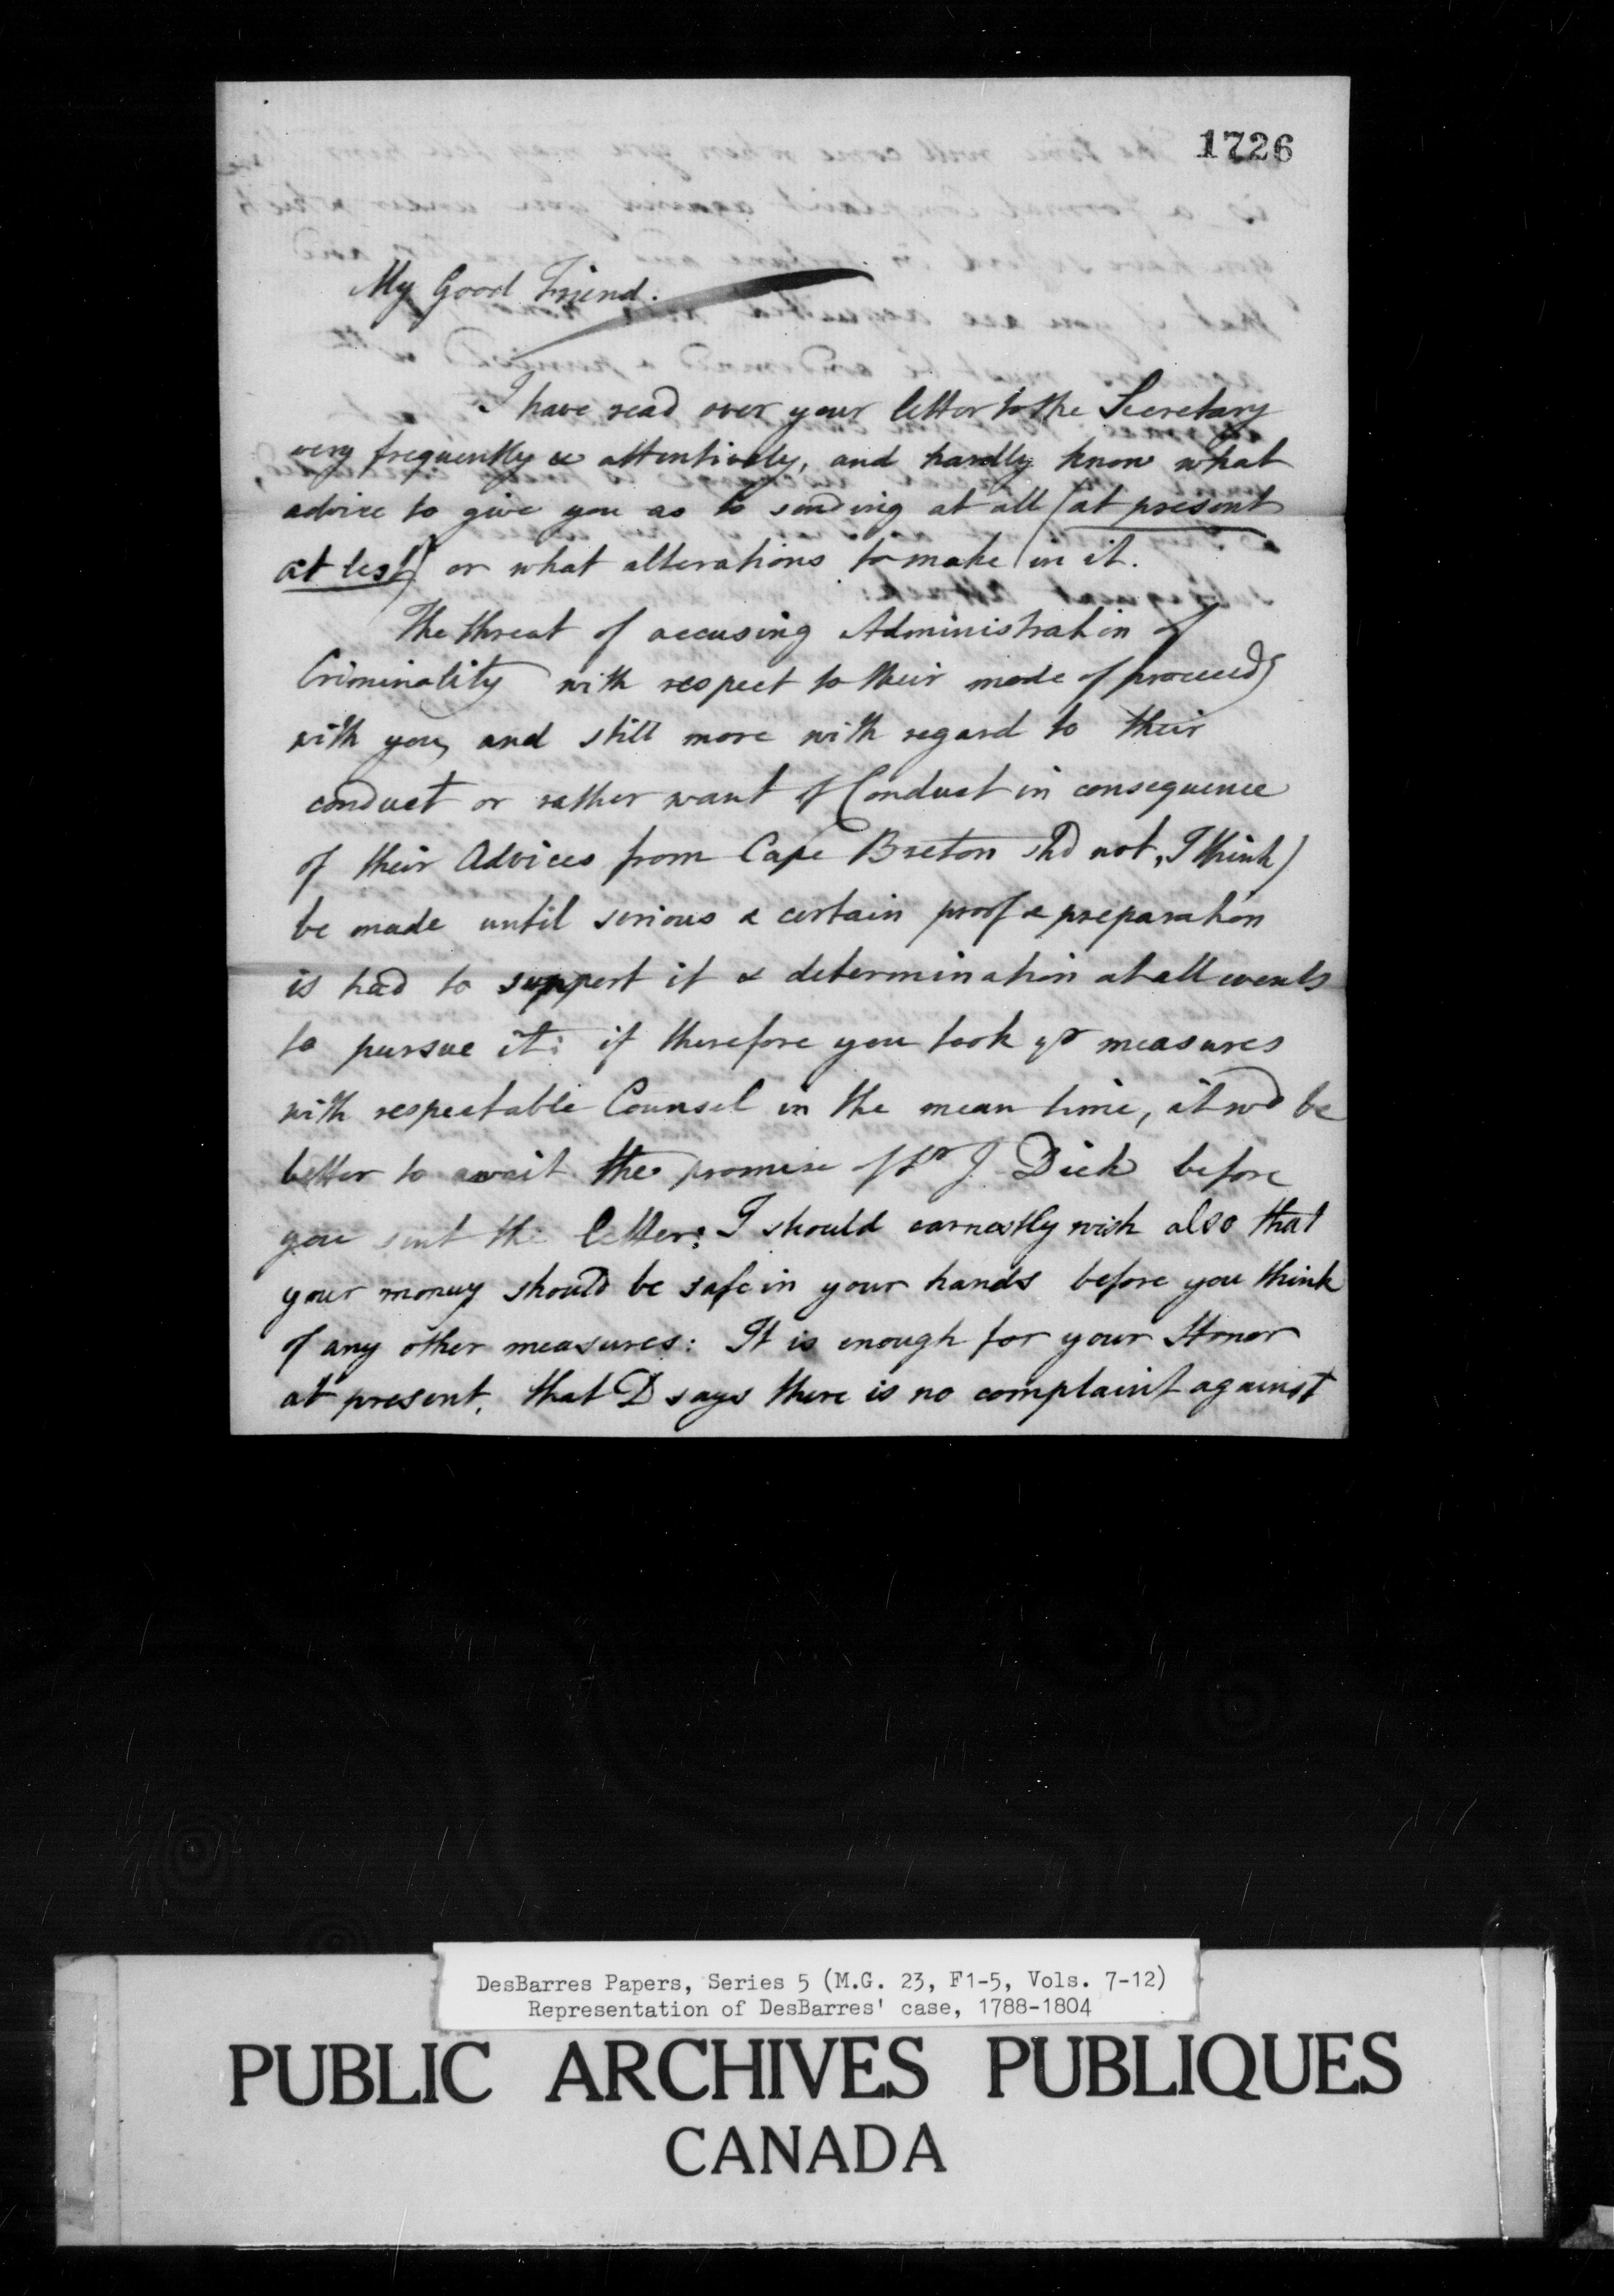 1726
My Good Friend.
I have read over your letter to the Secretary
very frequently & attentively, and hardly know what
advice to give you as to sending at all (at present
at lest) or what alterations to make in it.
The threat of accusing Administration of
Criminality with respect to their mode of proceedg
with you, and still more with regard to their
conduct or rather want of Conduct in consequence
of their Advices from Cape Breton shd not, I think)
be made until serious & certain proof & preparation
is had to support it & determination at all events
to pursue it: if therefore you took yr measures
with respectable Counsel in the mean time, it wd be
better to await the promise of Sr J. Dick before
you sent the letter: I should earnestly wish also that
your money should be safe in your hands before you think
of any other measures: It is enough for your Honor
at present, that D says there is no complaint against
DesBarres Papers, Series 5 (M.G. 23, F1-5, Vols. 7-12)
Representation of DesBarres' case, 1788-1804
PUBLIC ARCHIVES PUBLIQUES
CANADA